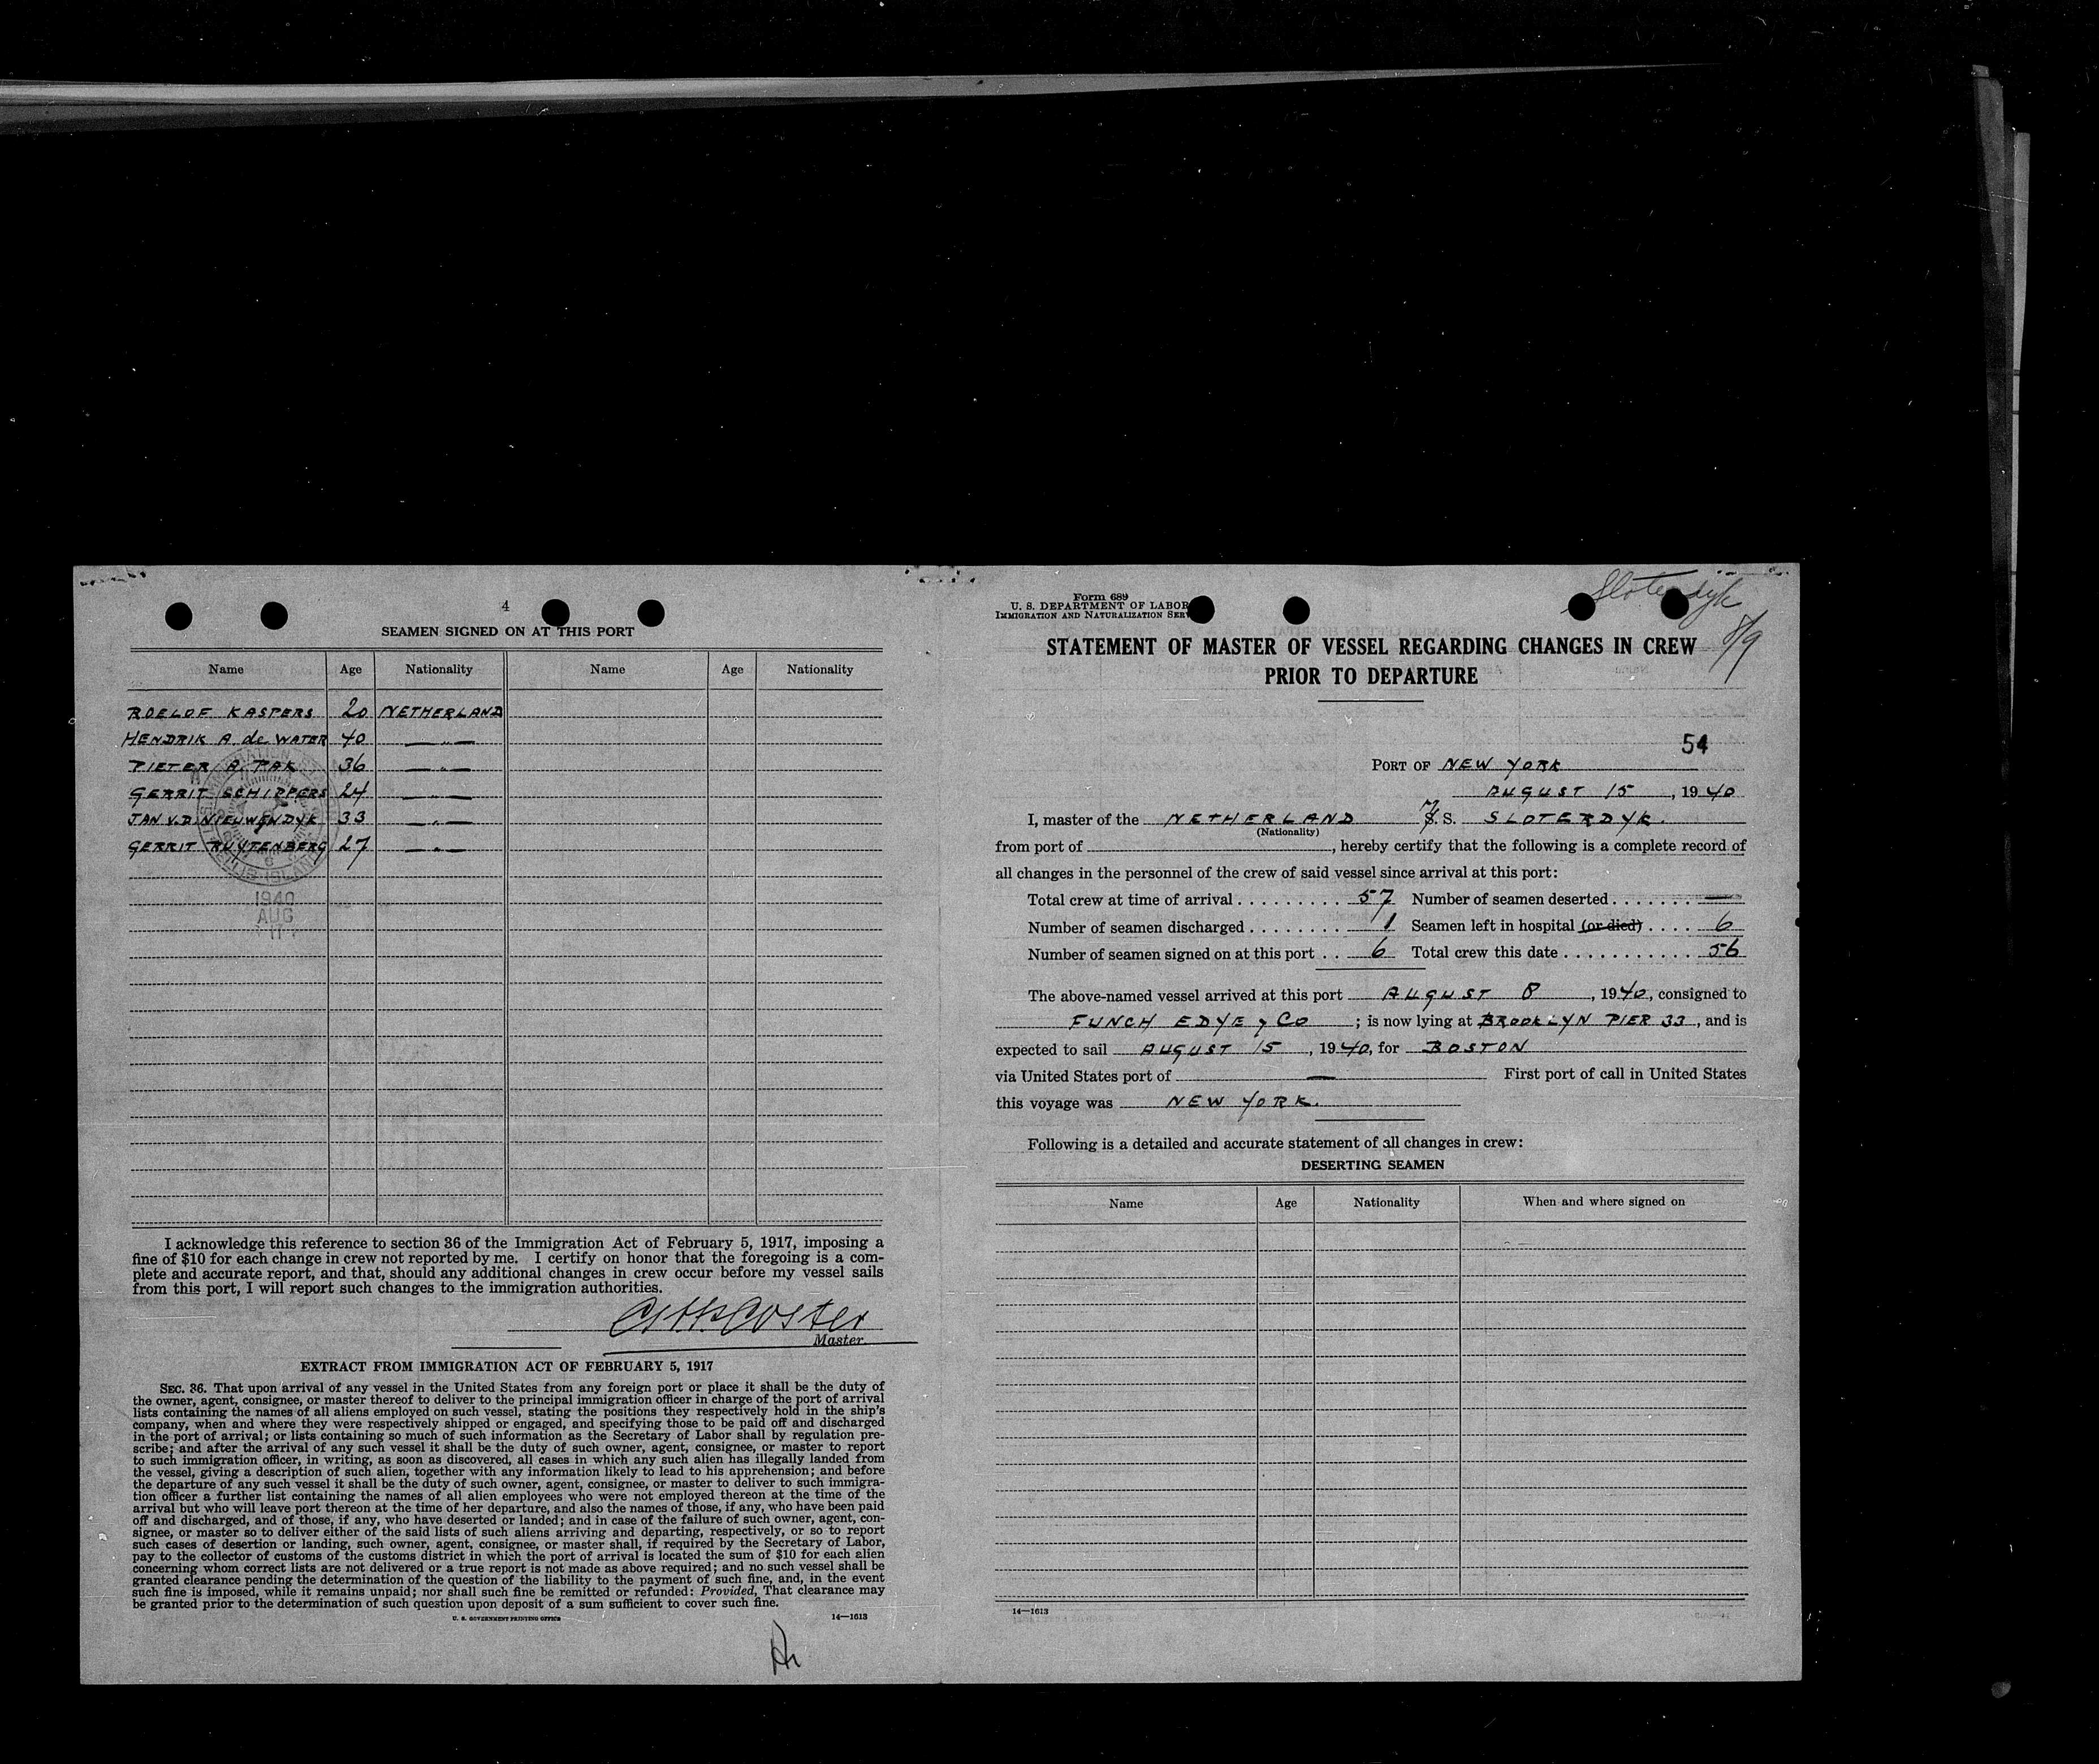 4
SEAMEN SIGNED ON AT THIS PORT
Name Age Nationality Name Age Nationality
ROELOF KASPERS 20 NETHERLAND
HENDRIK A. de WATER 40 — „ —
PIETER A. PAK 36 — „ —
GERRIT SCHIPPERS 24 — „ —
JAN V.D. NIEUWENDYK 33 — „ —
GERRIT RUYTENBERG 27 — „ —
1940
AUG
17
I acknowledge this reference to section 36 of the Immigration Act of February 5, 1917, imposing a
fine of $10 for each change in crew not reported by me. I certify on honor that the foregoing is a com-
plete and accurate report, and that, should any additional changes in crew occur before my vessel sails
from this port, I will report such changes to the immigration authorities.
Coster
Master.
EXTRACT FROM IMMIGRATION ACT OF FEBRUARY 5, 1917
SEC. 36. That upon arrival of any vessel in the United States from any foreign port or place it shall be the duty of
the owner, agent, consignee, or master thereof to deliver to the principal immigration officer in charge of the port of arrival
lists containing the names of all aliens employed on such vessel, stating the positions they respectively hold in the ship's
company, when and where they were respectively shipped or engaged, and specifying those to be paid off and discharged
in the port of arrival; or lists containing so much of such information as the Secretary of Labor shall by regulation pre-
scribe; and after the arrival of any such vessel it shall be the duty of such owner, agent, consignee, or master to report
to such immigration officer, in writing, as soon as discovered, all cases in which any such alien has illegally landed from
the vessel, giving a description of such alien, together with any information likely to lead to his apprehension; and before
the departure of any such vessel it shall be the duty of such owner, agent, consignee, or master to deliver to such immigra-
tion officer a further list containing the names of all alien employees who were not employed thereon at the time of the
arrival but who will leave port thereon at the time of her departure, and also the names of those, if any, who have been paid
off and discharged, and of those, if any, who have deserted or landed; and in case of the failure of such owner, agent, con-
signee, or master so to deliver either of the said lists of such aliens arriving and departing, respectively, or so to report
such cases of desertion or landing, such owner, agent, consignee, or master shall, if required by the Secretary of Labor,
pay to the collector of customs of the customs district in which the port of arrival is located the sum of $10 for each alien
concerning whom correct lists are not delivered or a true report is not made as above required; and no such vessel shall be
granted clearance pending the determination of the question of the liability to the payment of such fine, and, in the event
such fine is imposed, while it remains unpaid; nor shall such fine be remitted or refunded: Provided, That clearance may
be granted prior to the determination of such question upon deposit of a sum sufficient to cover such fine.
U. S. GOVERNMENT PRINTING OFFICE 14—1613
Form 689
U. S. DEPARTMENT OF LABOR
IMMIGRATION AND NATURALIZATION SER
Sloterdyk
8/9
STATEMENT OF MASTER OF VESSEL REGARDING CHANGES IN CREW
PRIOR TO DEPARTURE
54
PORT OF NEW YORK
AUGUST 15, 1940
I, master of the NETHERLAND S. S. SLOTERDYK.
(Nationality)
from port of , hereby certify that the following is a complete record of
all changes in the personnel of the crew of said vessel since arrival at this port:
Total crew at time of arrival 57 Number of seamen deserted —
Number of seamen discharged 1 Seamen left in hospital (or died) 6
Number of seamen signed on at this port 6 Total crew this date 56
The above-named vessel arrived at this port AUGUST 8, 1940, consigned to
FUNCH EDYE y Co; is now lying at BROOKLYN PIER 33, and is
expected to sail AUGUST 15, 1940, for BOSTON
via United States port of — First port of call in United States
this voyage was NEW YORK.
Following is a detailed and accurate statement of all changes in crew:
DESERTING SEAMEN
Name Age Nationality When and where signed on
14—1613